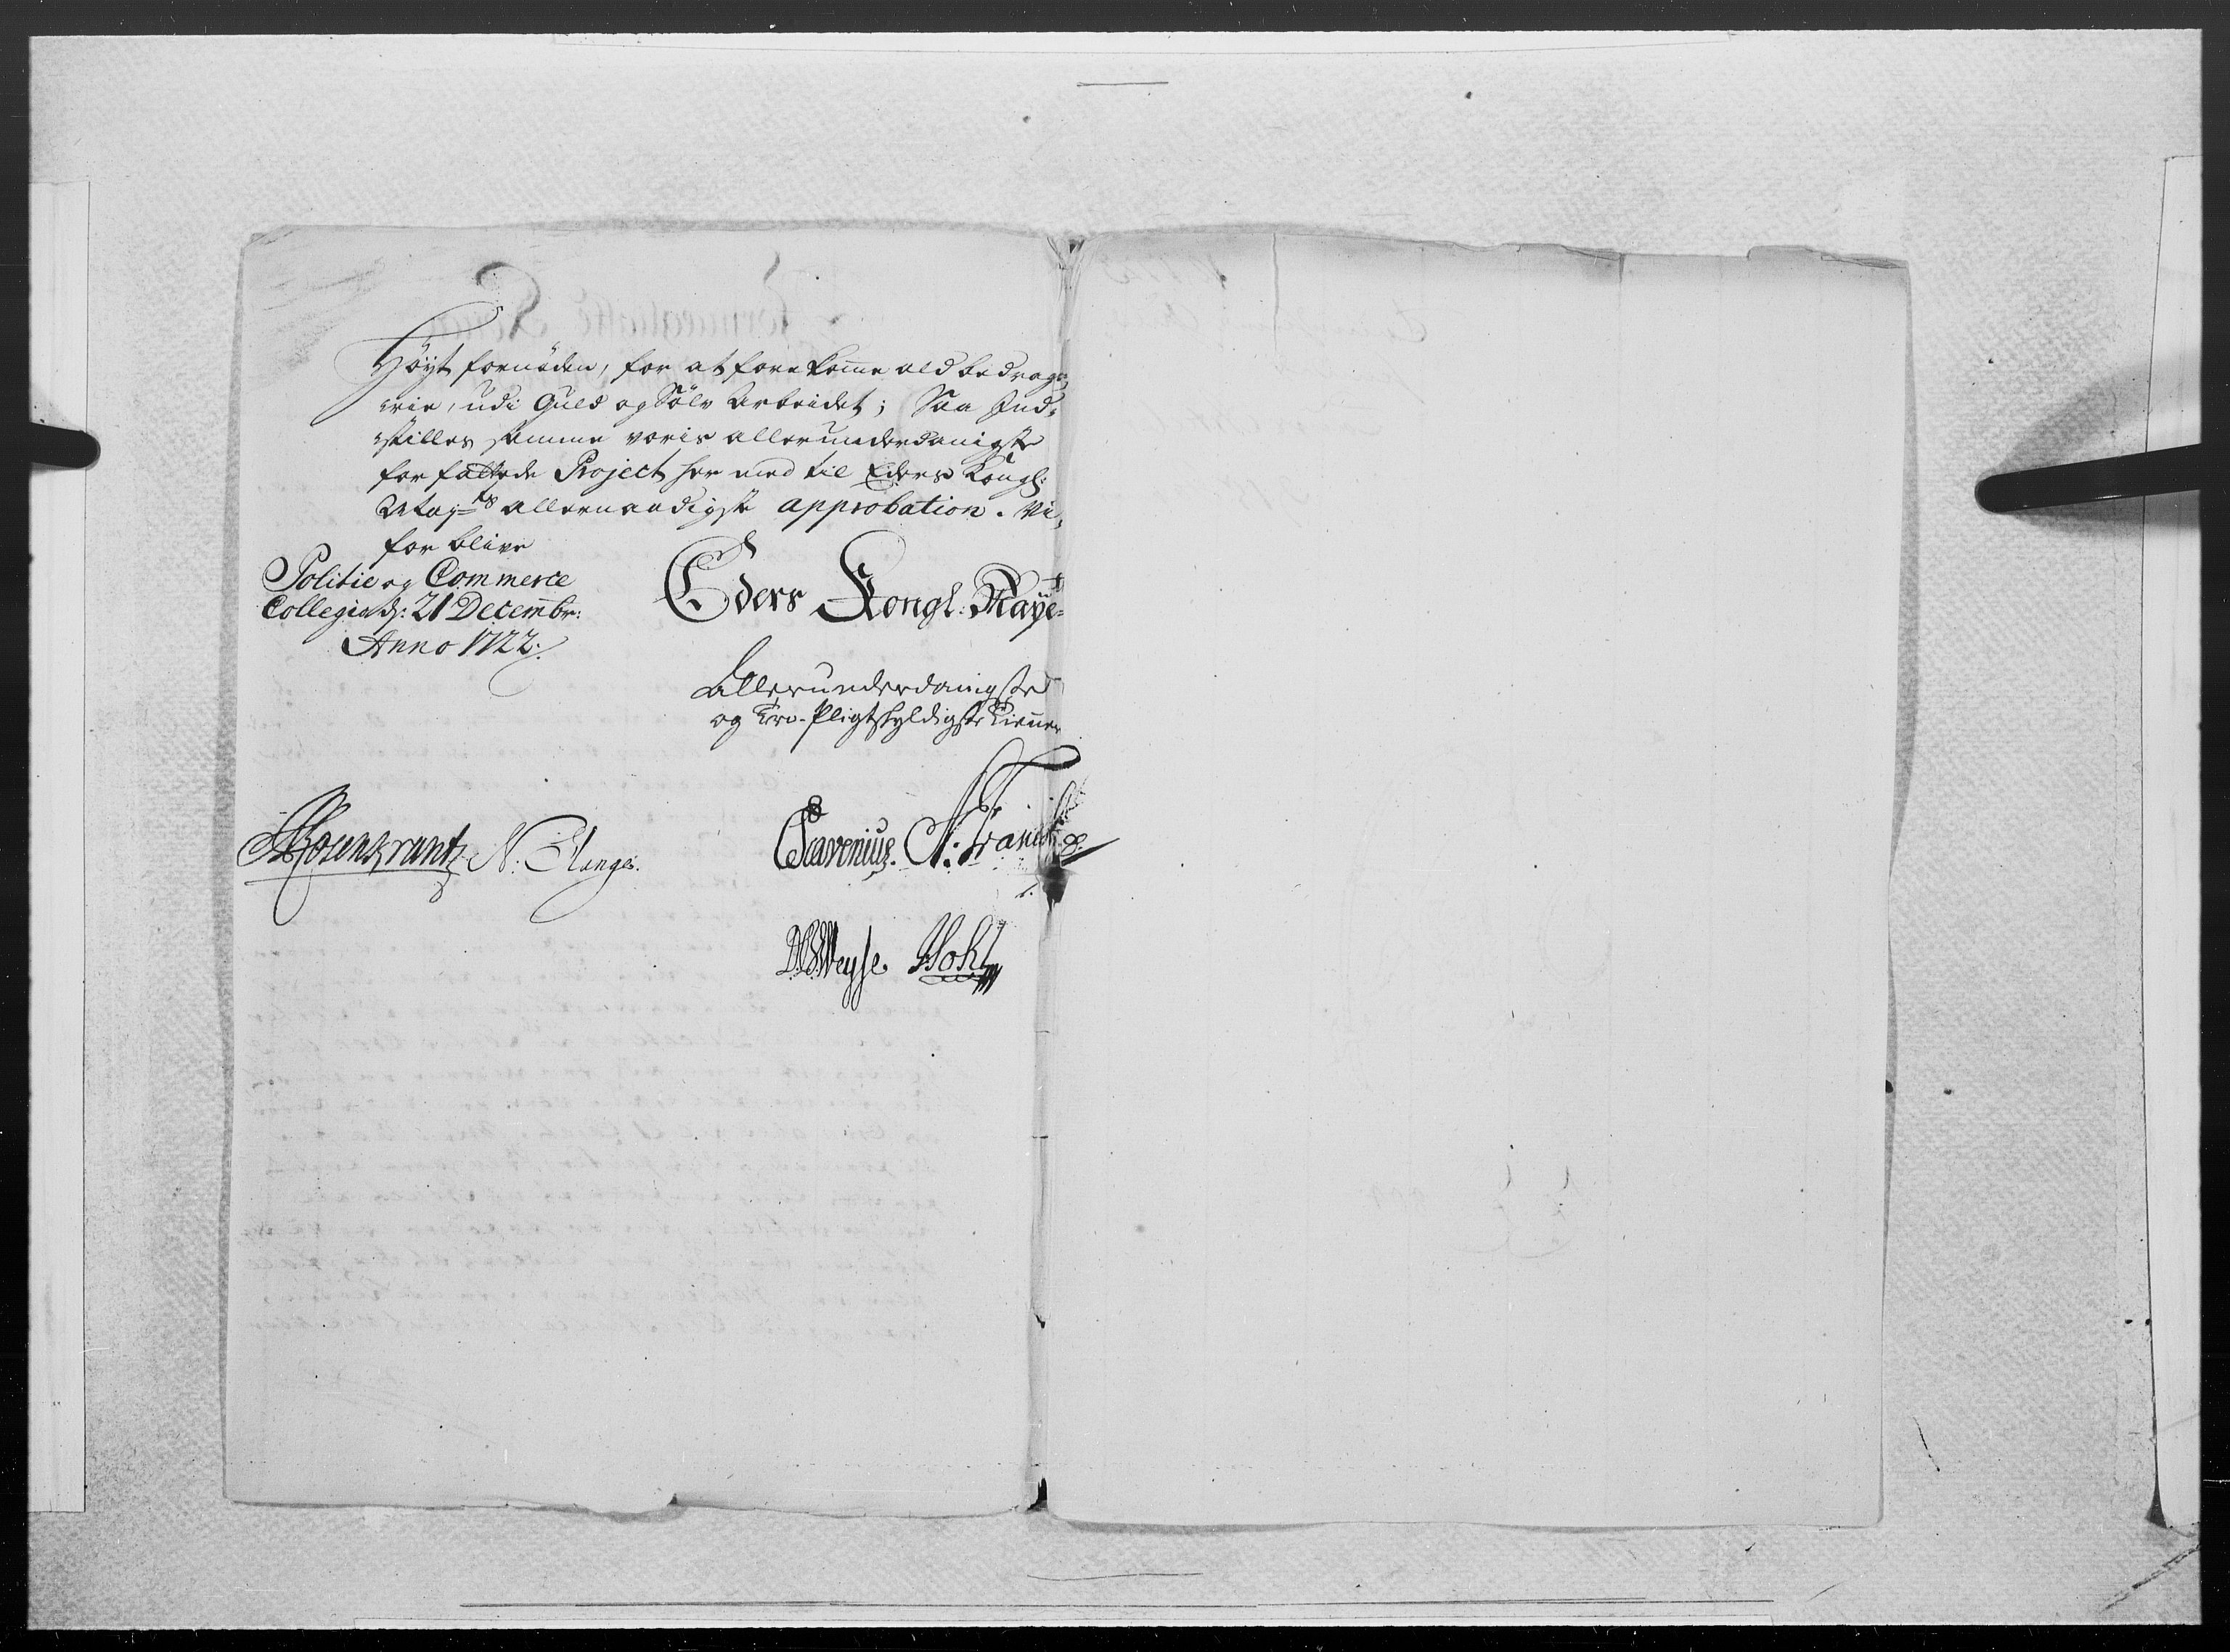 Høyt fornøden, for at forekom̄e ald bedrage,
rie, udi Guld og Sølv Arbeidet; Saa Ind,
stilles samme voris allerunderdanigste
forfattede Project her med til Eders Kongl:
May=ts allernaadigste approbation. Vi,
for blive
Politie og Commerce
Collegio d: 21 Decembr:
Anno 1722.
Eders Kongl: Maye=ts
Allerunderdanigste
og Tro-Pligtskyldigste Tienner
Rosenkrantz N: Slange.
Scavenius. Franck
Weyse. Hohl